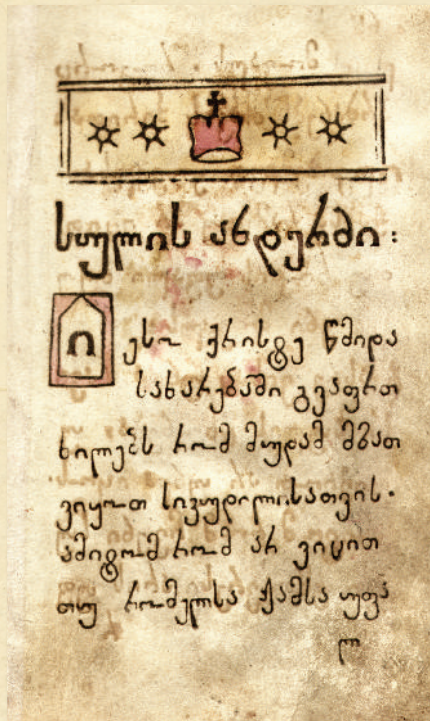 სულის ანდერძი:
იესო ქრისტე წმიდა
სახარებაში გვაფრთ
ხილებს რომ მუდამ მზათ
ვიყოთ სიკვდილისათვის.
ამიტომ რომ არ ვიცით
თუ რომელსა ჟამსა უფა
ლ